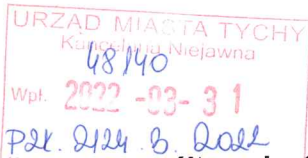 URZĄD MIASTA TYCHY
Kancelaria Niejawna
48140
Wpł. 2022 -03- 31
PZK. 2124. 3. 2022